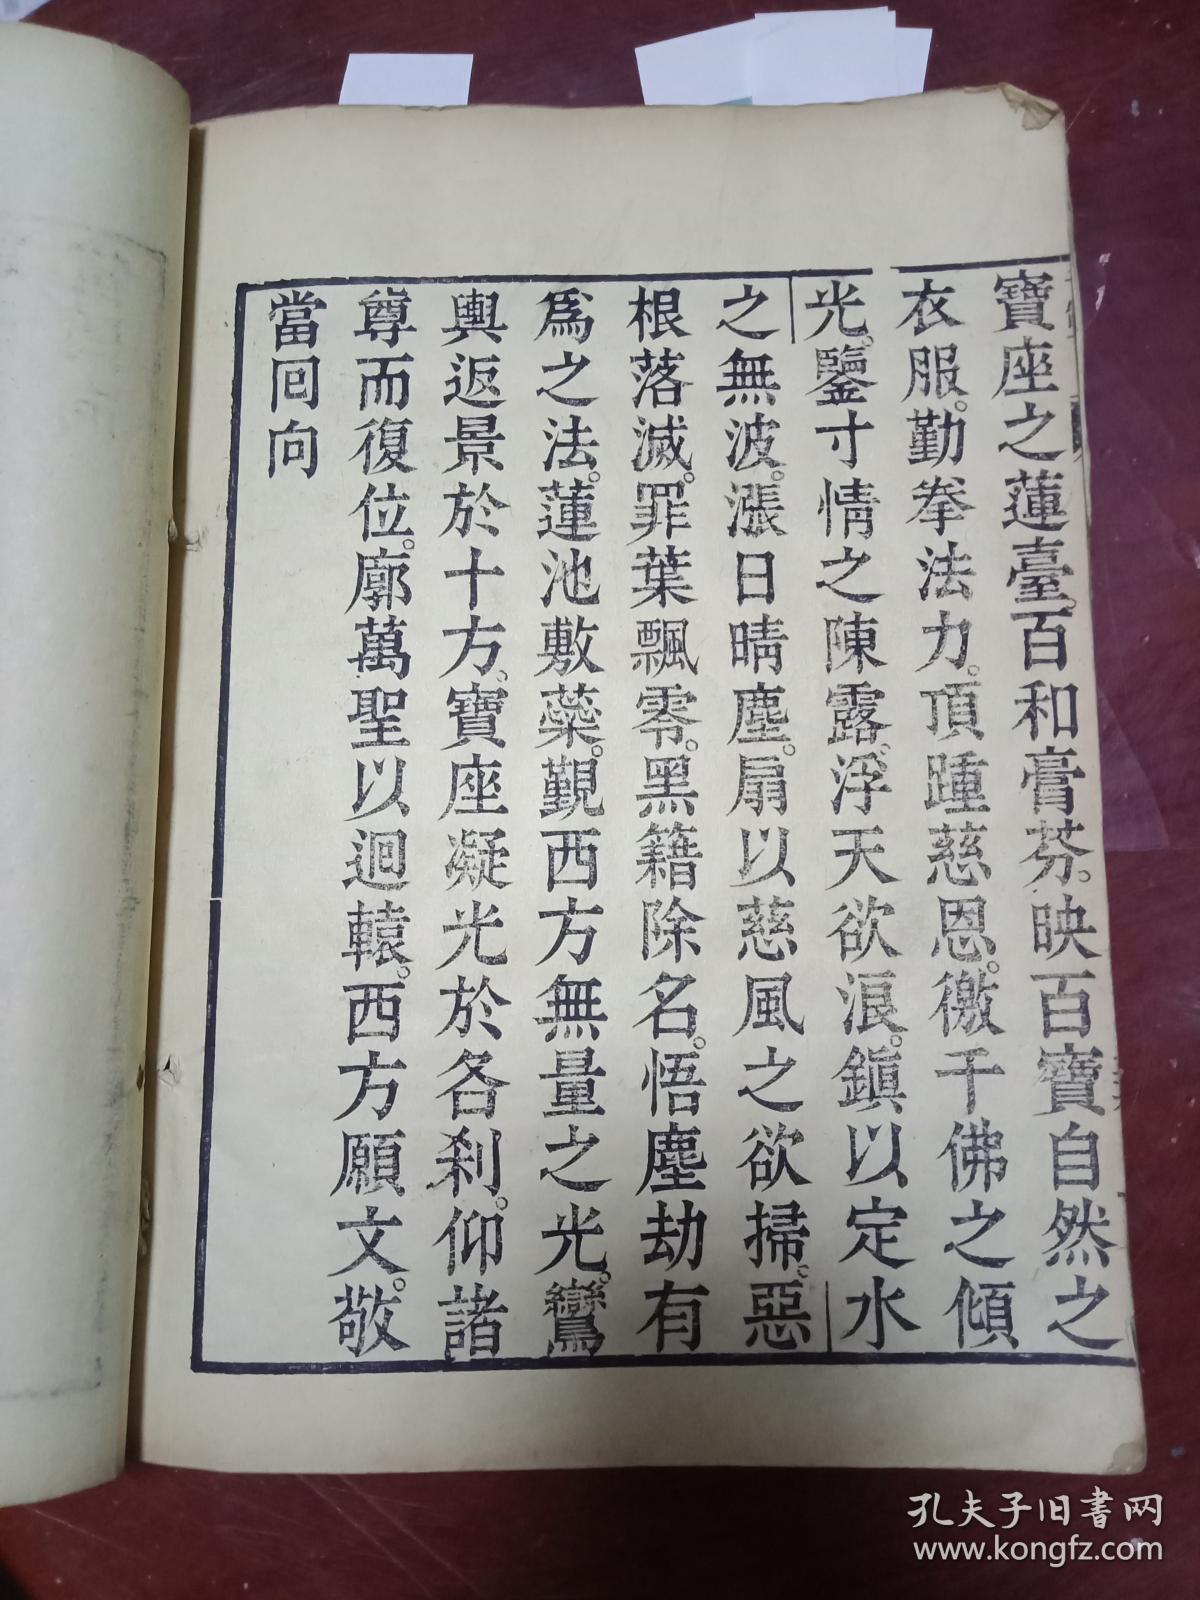 寶座之蓮臺。百和膏芬。映百寶自然之
衣服。勤拳法力。頂踵慈恩。徼千佛之傾
光。鑒寸情之陳露。浮天欲浪。鎮以定水
之無波。漲日晴塵。扇以慈風之欲掃。惡
根落滅。罪葉飄零。黑籍除名。悟塵劫有
為之法。蓮池敷蘂。覲西方無量之光。鸞
輿返景於十方。寶座凝光於各刹。仰諸
尊而復位。廓萬聖以迴轅。西方願文。敬
當回向
孔夫子旧书网
www.kongfz.com